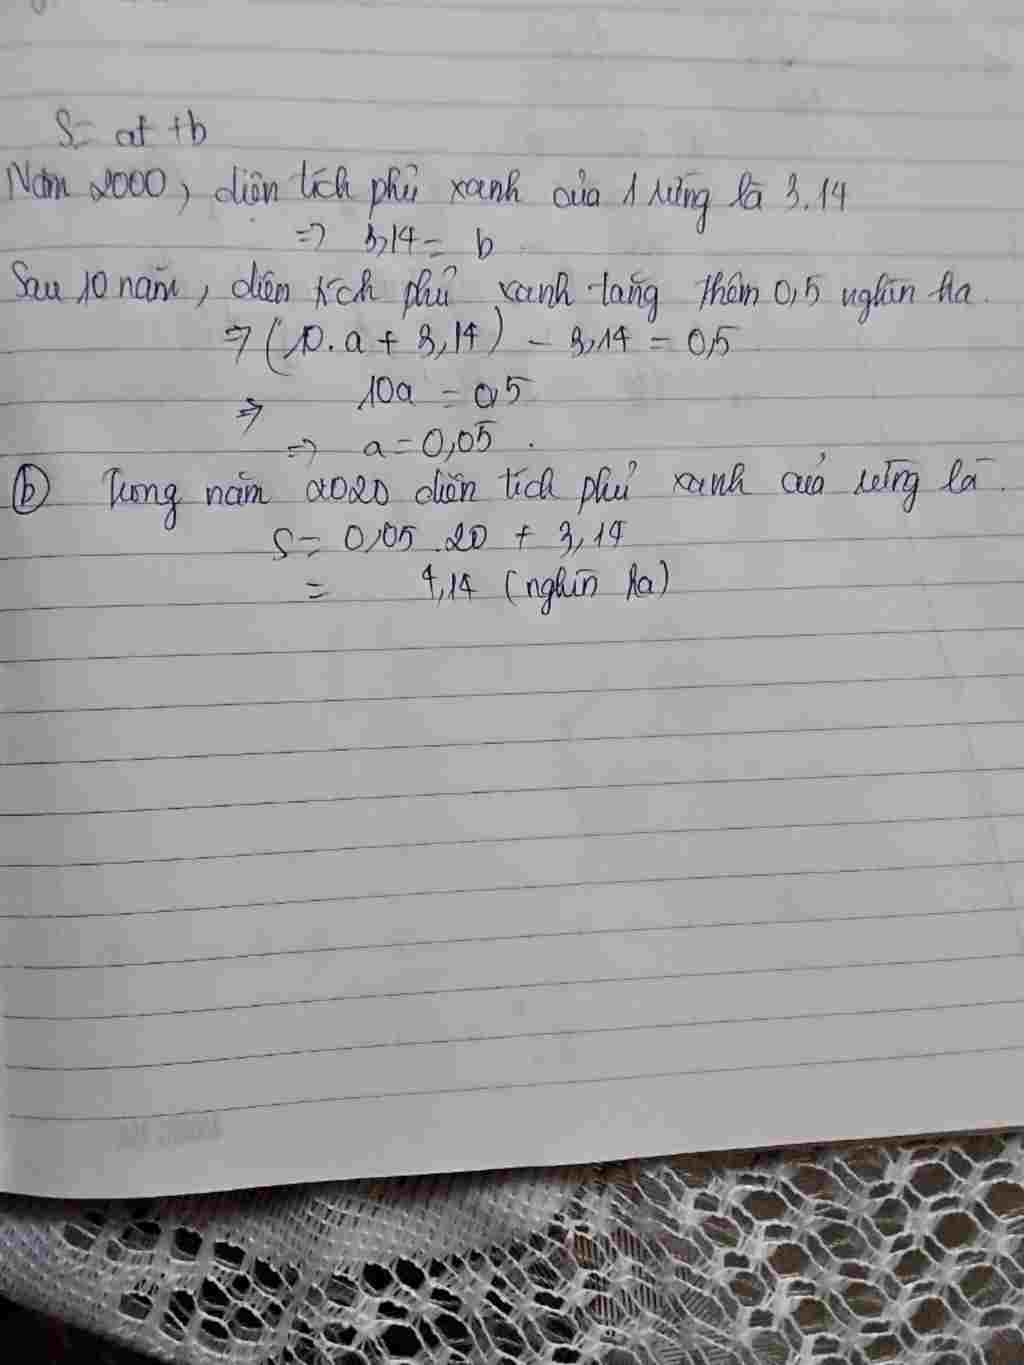 S = at + b
Năm 2000, diện tích phủ xanh của 1 rừng là 3.14
=> 3,14 = b
Sau 10 năm, diện tích phủ xanh tăng thêm 0,5 nghìn ha.
=> (10.a + 3,14) - 3,14 = 0,5
=> 10a = 0,5
=> a = 0,05.
b) Trong năm 2020 diện tích phủ xanh của rừng là.
S = 0,05 .20 + 3,14
= 4,14 (nghìn ha)